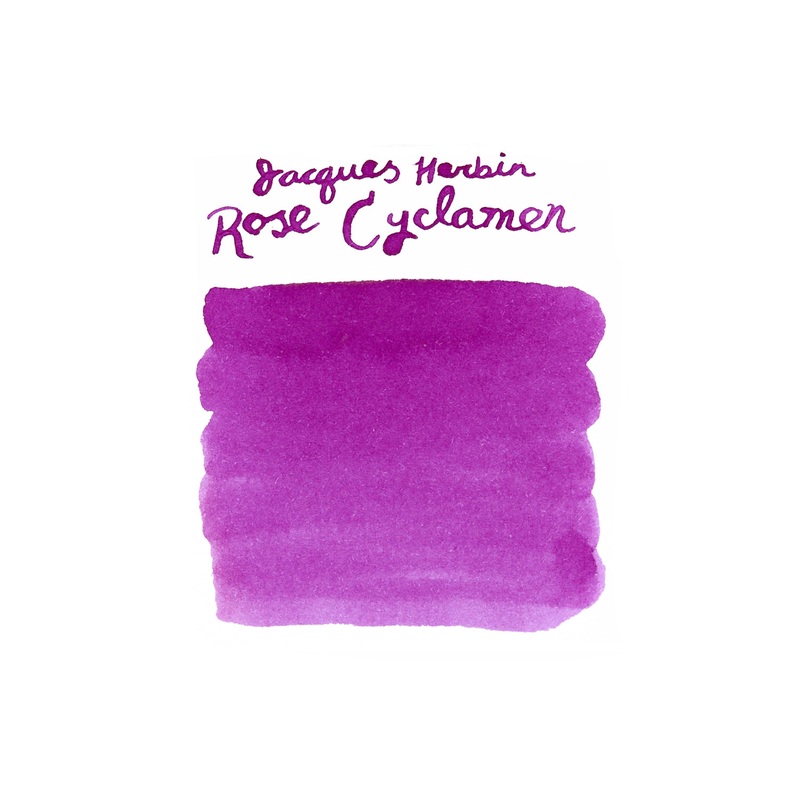 Jacques Herbin
Rose Cyclamen